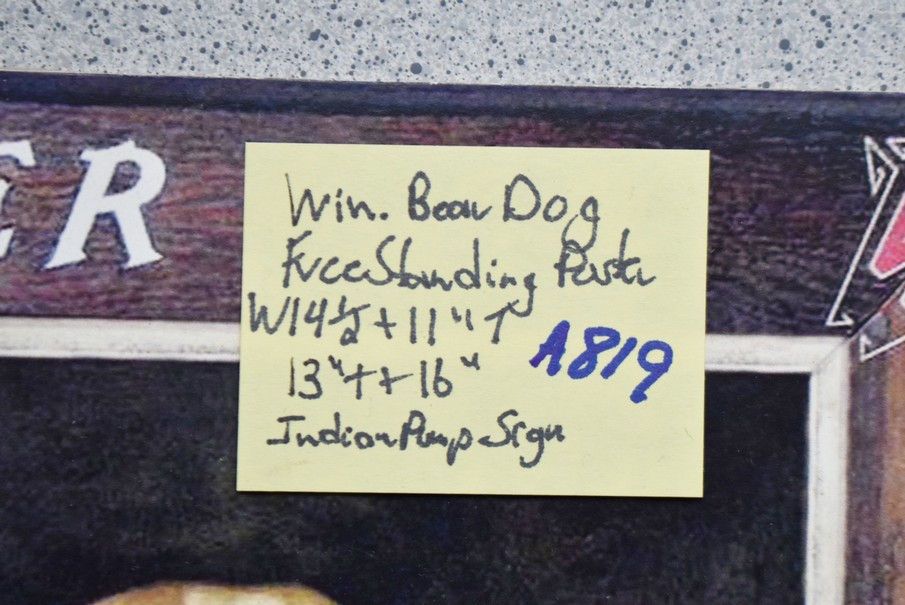 ER
Win. Bear Dog
FreeStanding Poster
W14½+11" T
13"++16"
A819
Indian Pump Sign